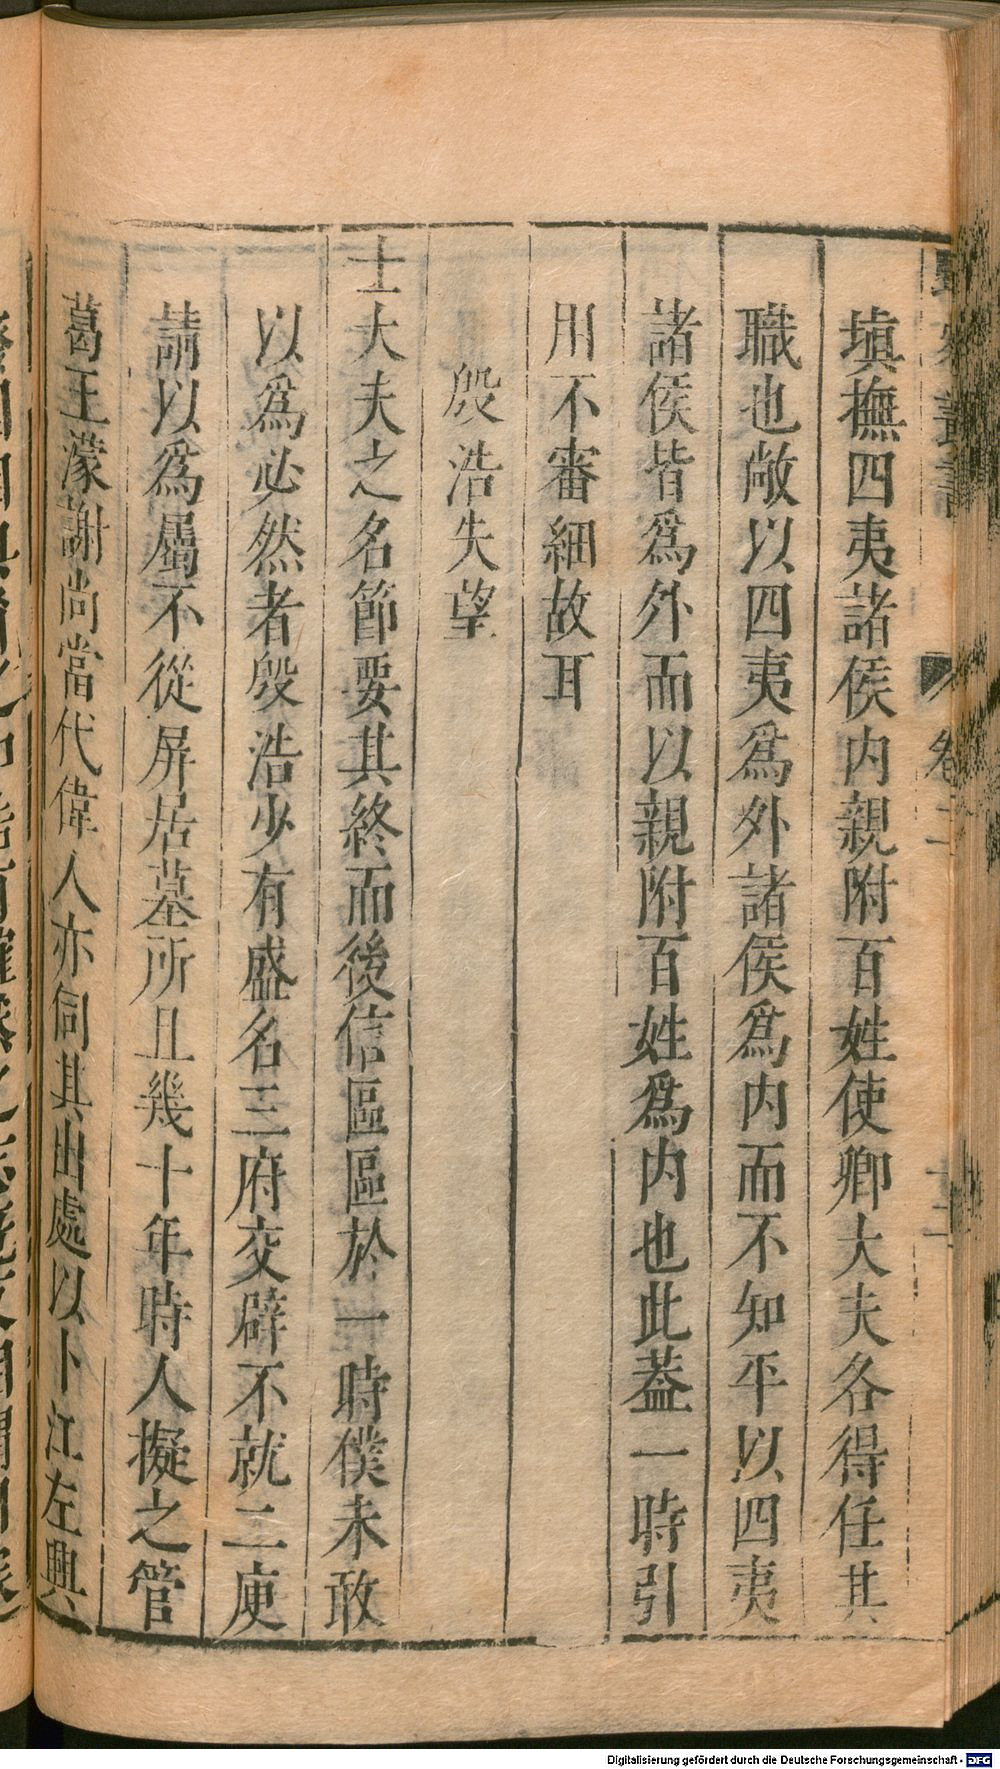 填撫四夷諸侯内親附百姓使卿大夫各得任其
職也敞以四夷爲外諸侯爲内而不知平以四夷
諸侯皆爲外而以親附百姓爲内也此葢一時引
用不審細故耳
殷浩失望
士大夫之名節要其終而後信區區於一時僕未敢
以爲必然者殷浩少有盛名三府交辟不就二庾
請以爲屬不從屏居墓所且幾十年時人擬之管
葛王濛謝尚當代偉人亦伺其出處以卜江左興
卷二
十二
Digitalisierung gefördert durch die Deutsche Forschungsgemeinschaft - DFG